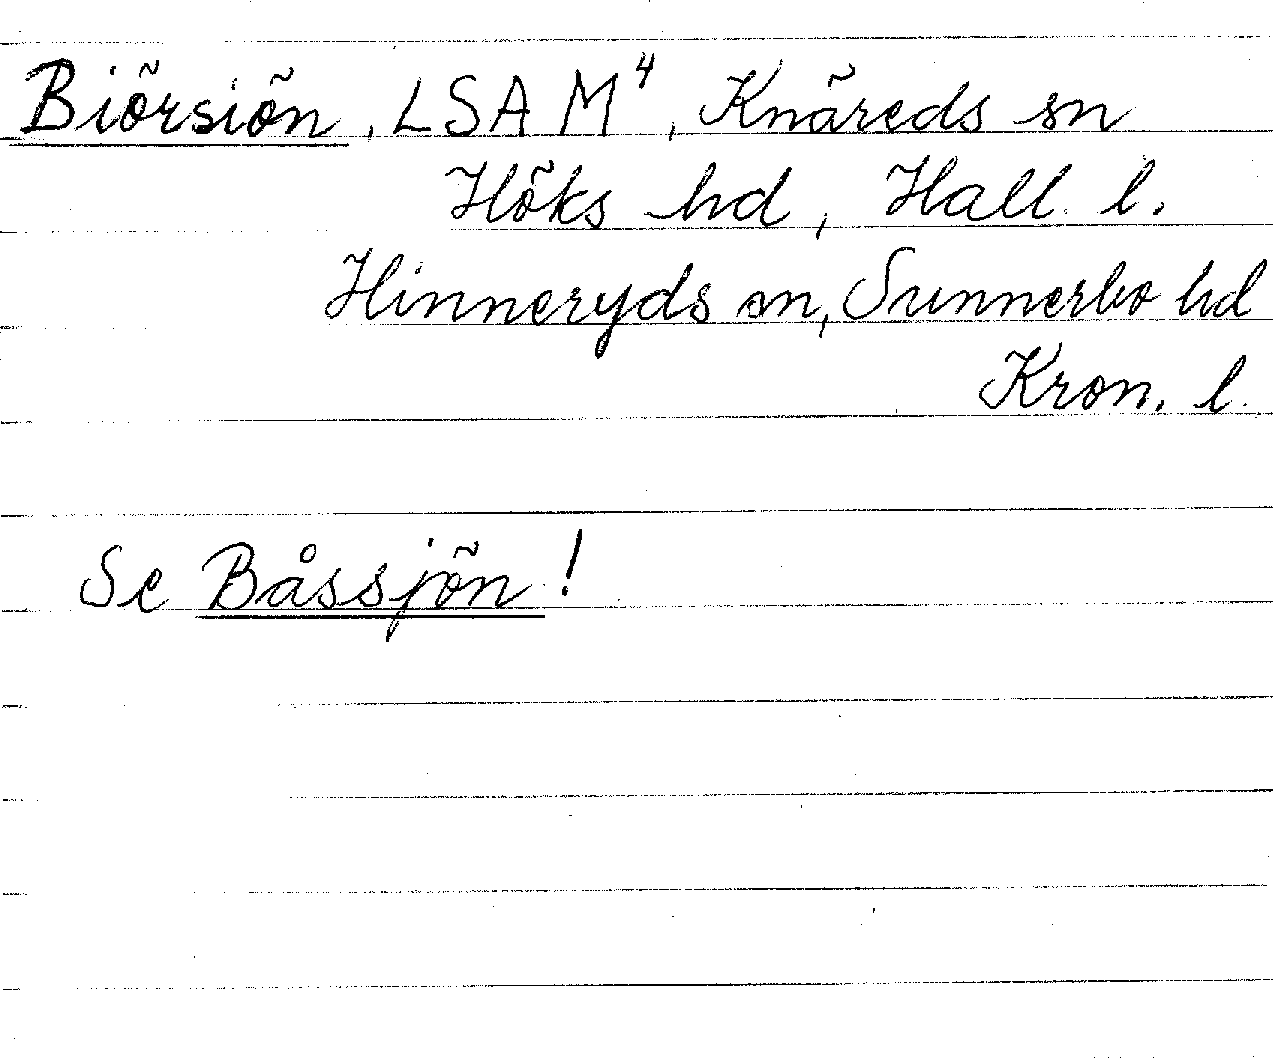 Biörsiön, LSA M⁴, Knäreds sn
Höks hd, Hall. l.
Hinneryds sn, Sunnerbo hd
Kron. l.
Se Båssjön!